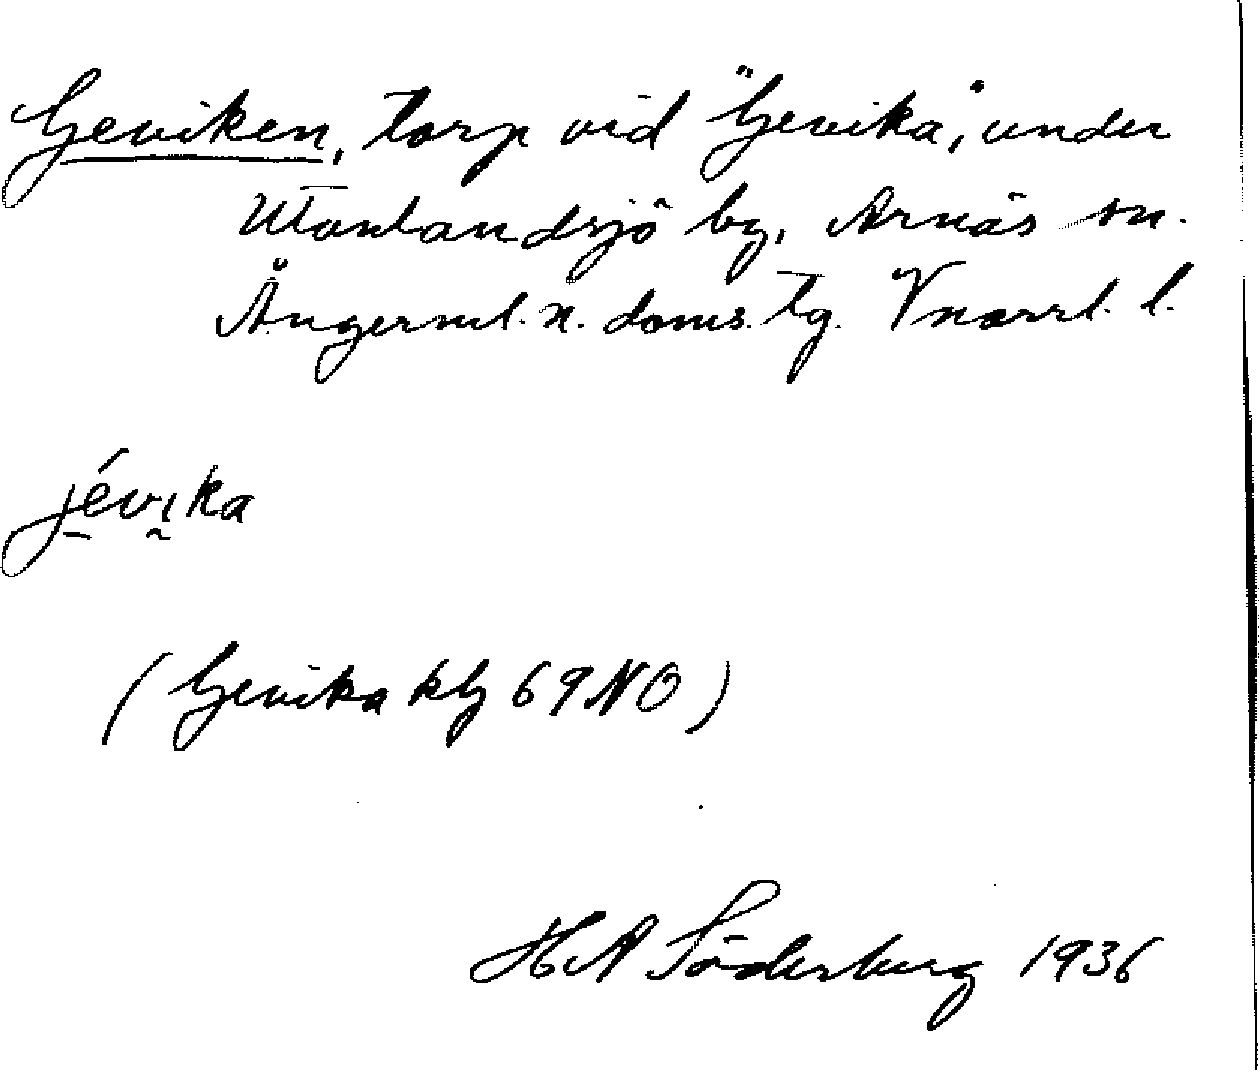 Geviken, torp vid "Gevika", under
Utanlandsjö by, Arnäs sn.
Ångerml. n. doms. tg. Vnorrl. l.
jévika
(Gevika kbl 69 NO)
H A Söderberg 1936